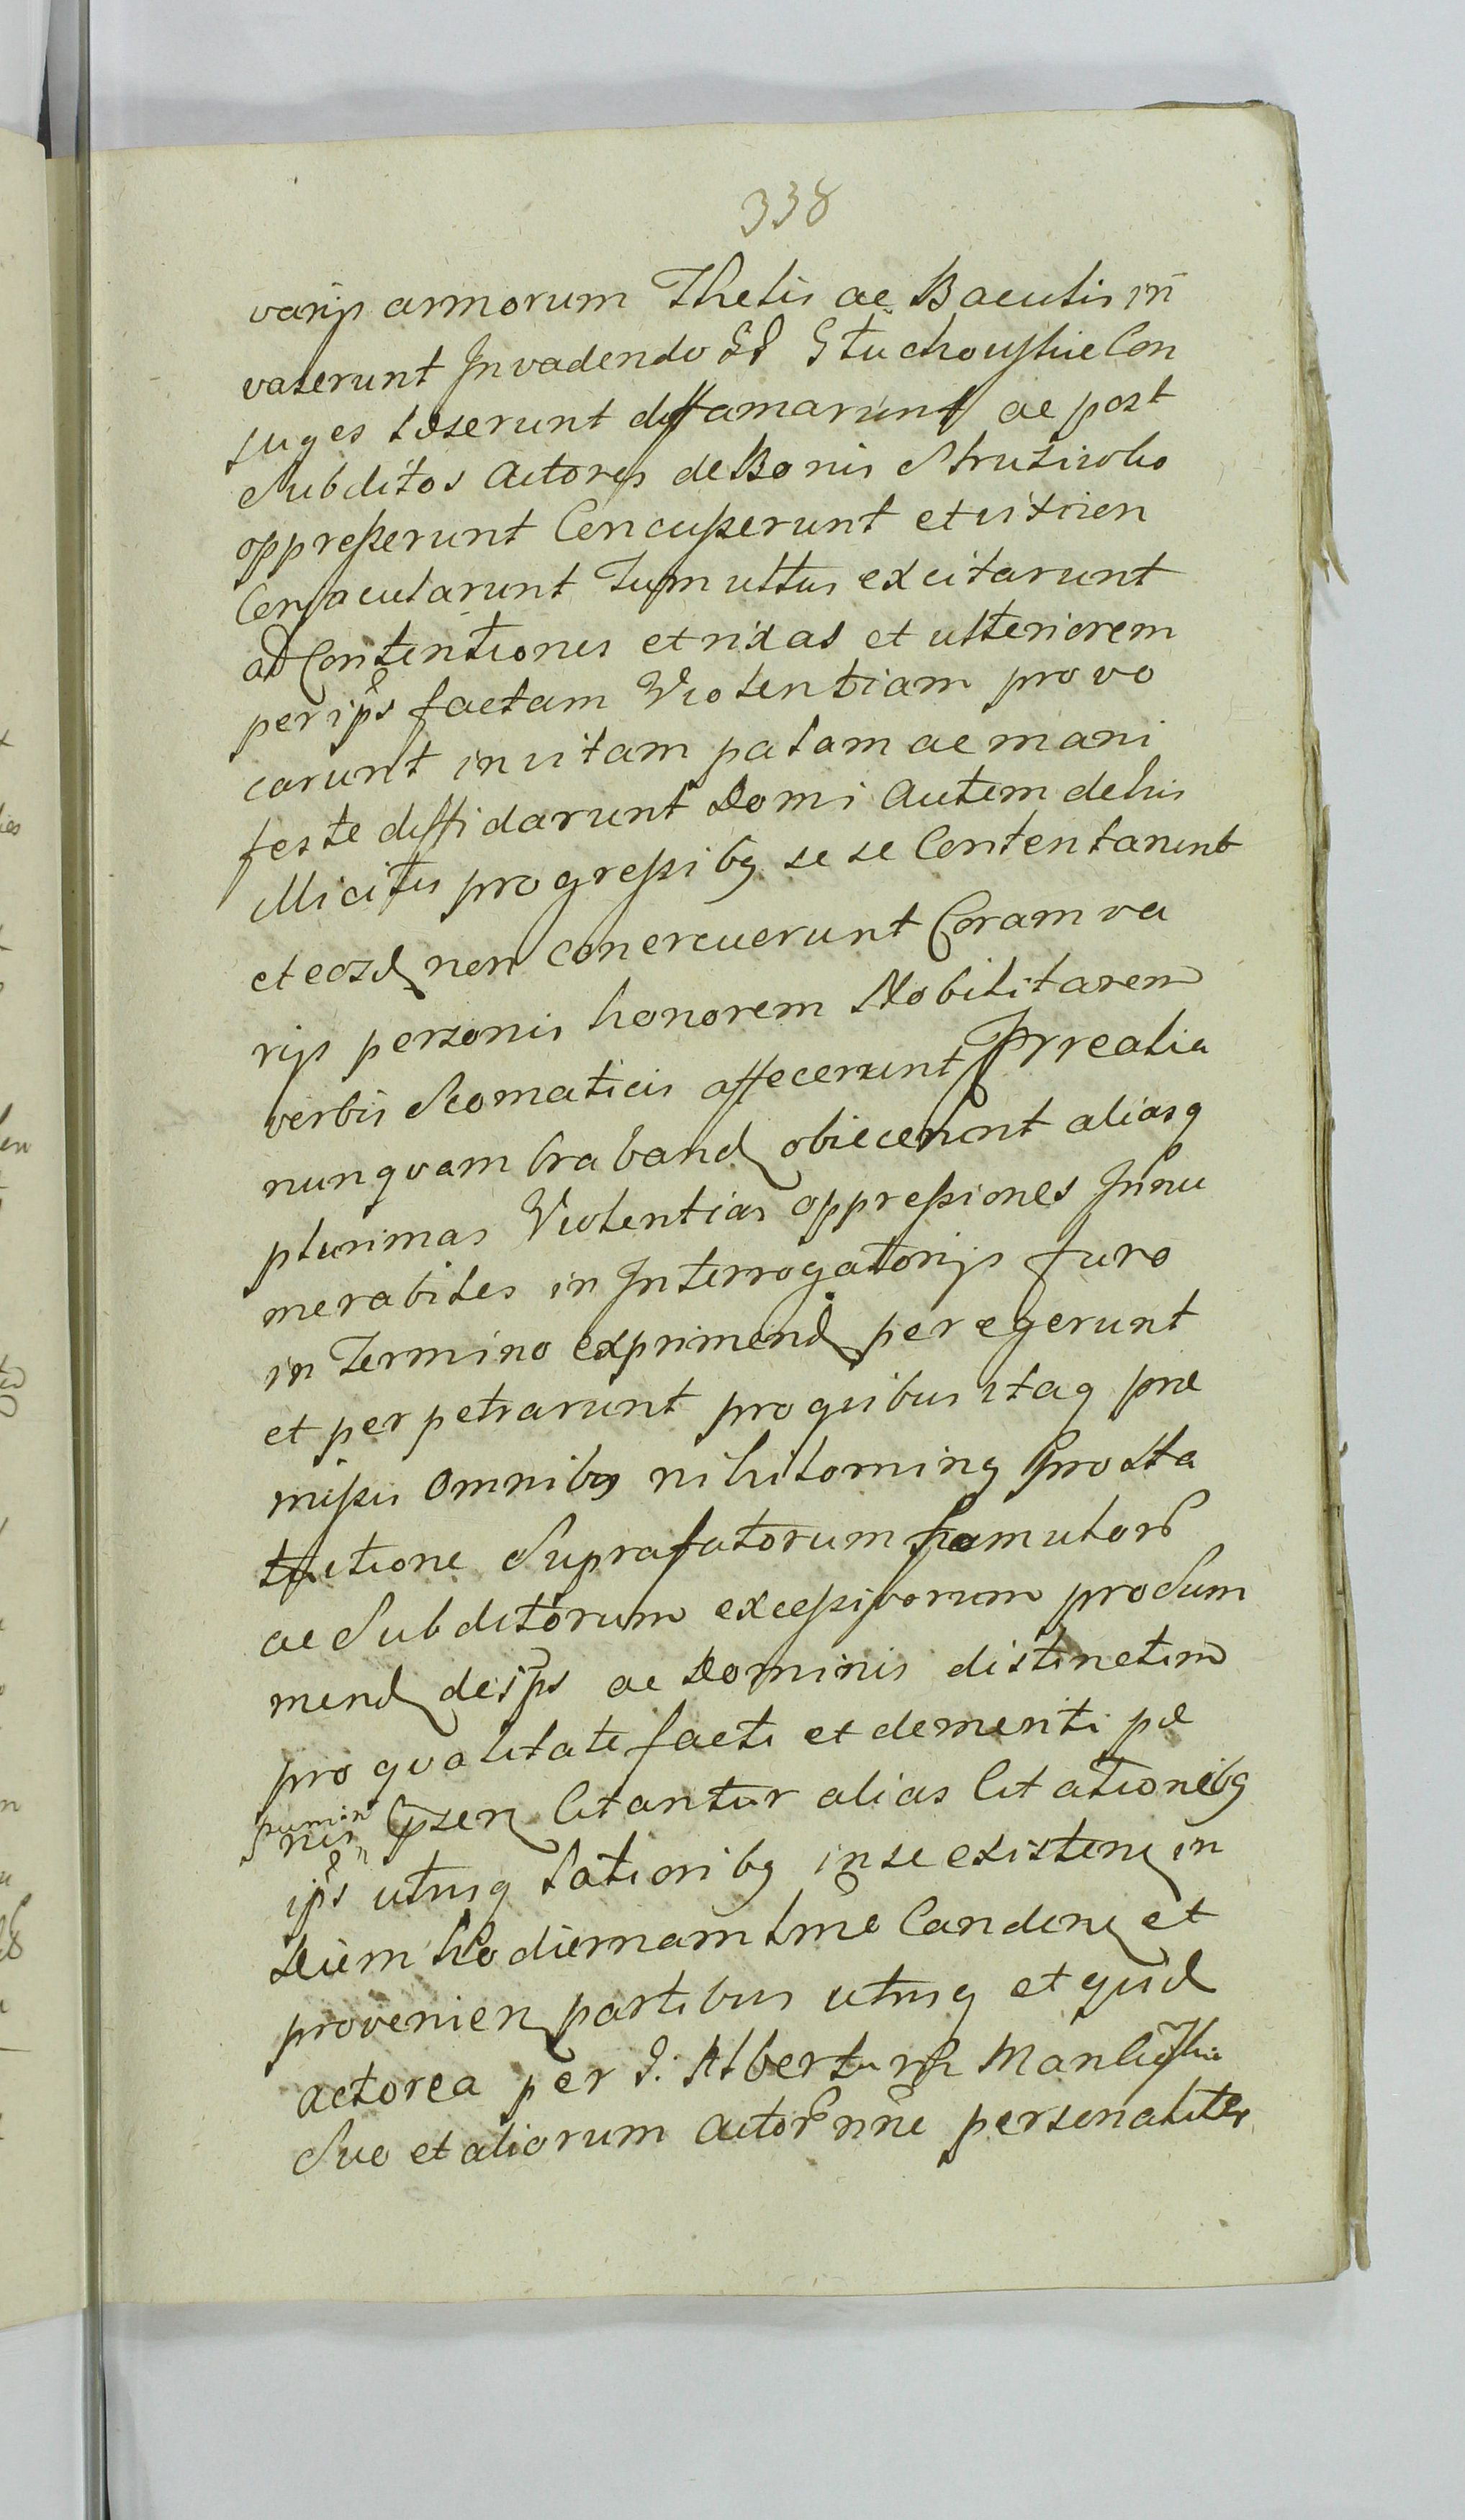 338
varijs armorum Thelis ac Baculis in
vaserunt Invadendo GG Stuchowskie Con
juges læserunt diffamarunt ac post
Subditos Actores de Bonis Strusiwko
oppresserunt Concusserunt et
Conjacularunt Tumultus excitarunt
ad Contentiones et rixas et ulteriorem
per ips factam Violentiam provo
carunt in vitam palam ac mani
feste diffidarunt Domi Autem de his
illicitis progressibq se se Contentarunt
et eosd non conercuerunt Coram va
rijs personis honorem Nobilitarem
verbis Scomaticis affecerunt Irrealia
nunqvam braband obiecerunt aliasq
plurimas Violentias oppressiones Innu
merabiles in Interrogatorijs Juro
in Termino exprimend peregerunt
et perpetrarunt pro quibus itaq præ
missis omnibq nihilominq pro Sta
tuitione Suprafatorum famulor
ac Subditorum excessivorum pro Sum
mend de ips ac Dominis distinctim
pro qvalitate facti et demeriti pæ
nis Citantur alias Citationibq
ips utrisq lationibq in se existen in
Diem hodiernam lme Canden et
provenien partibus utrisq et quid
actorea per G. Albertum Manliczkie
Suo et aliorum Actor nne personaliter